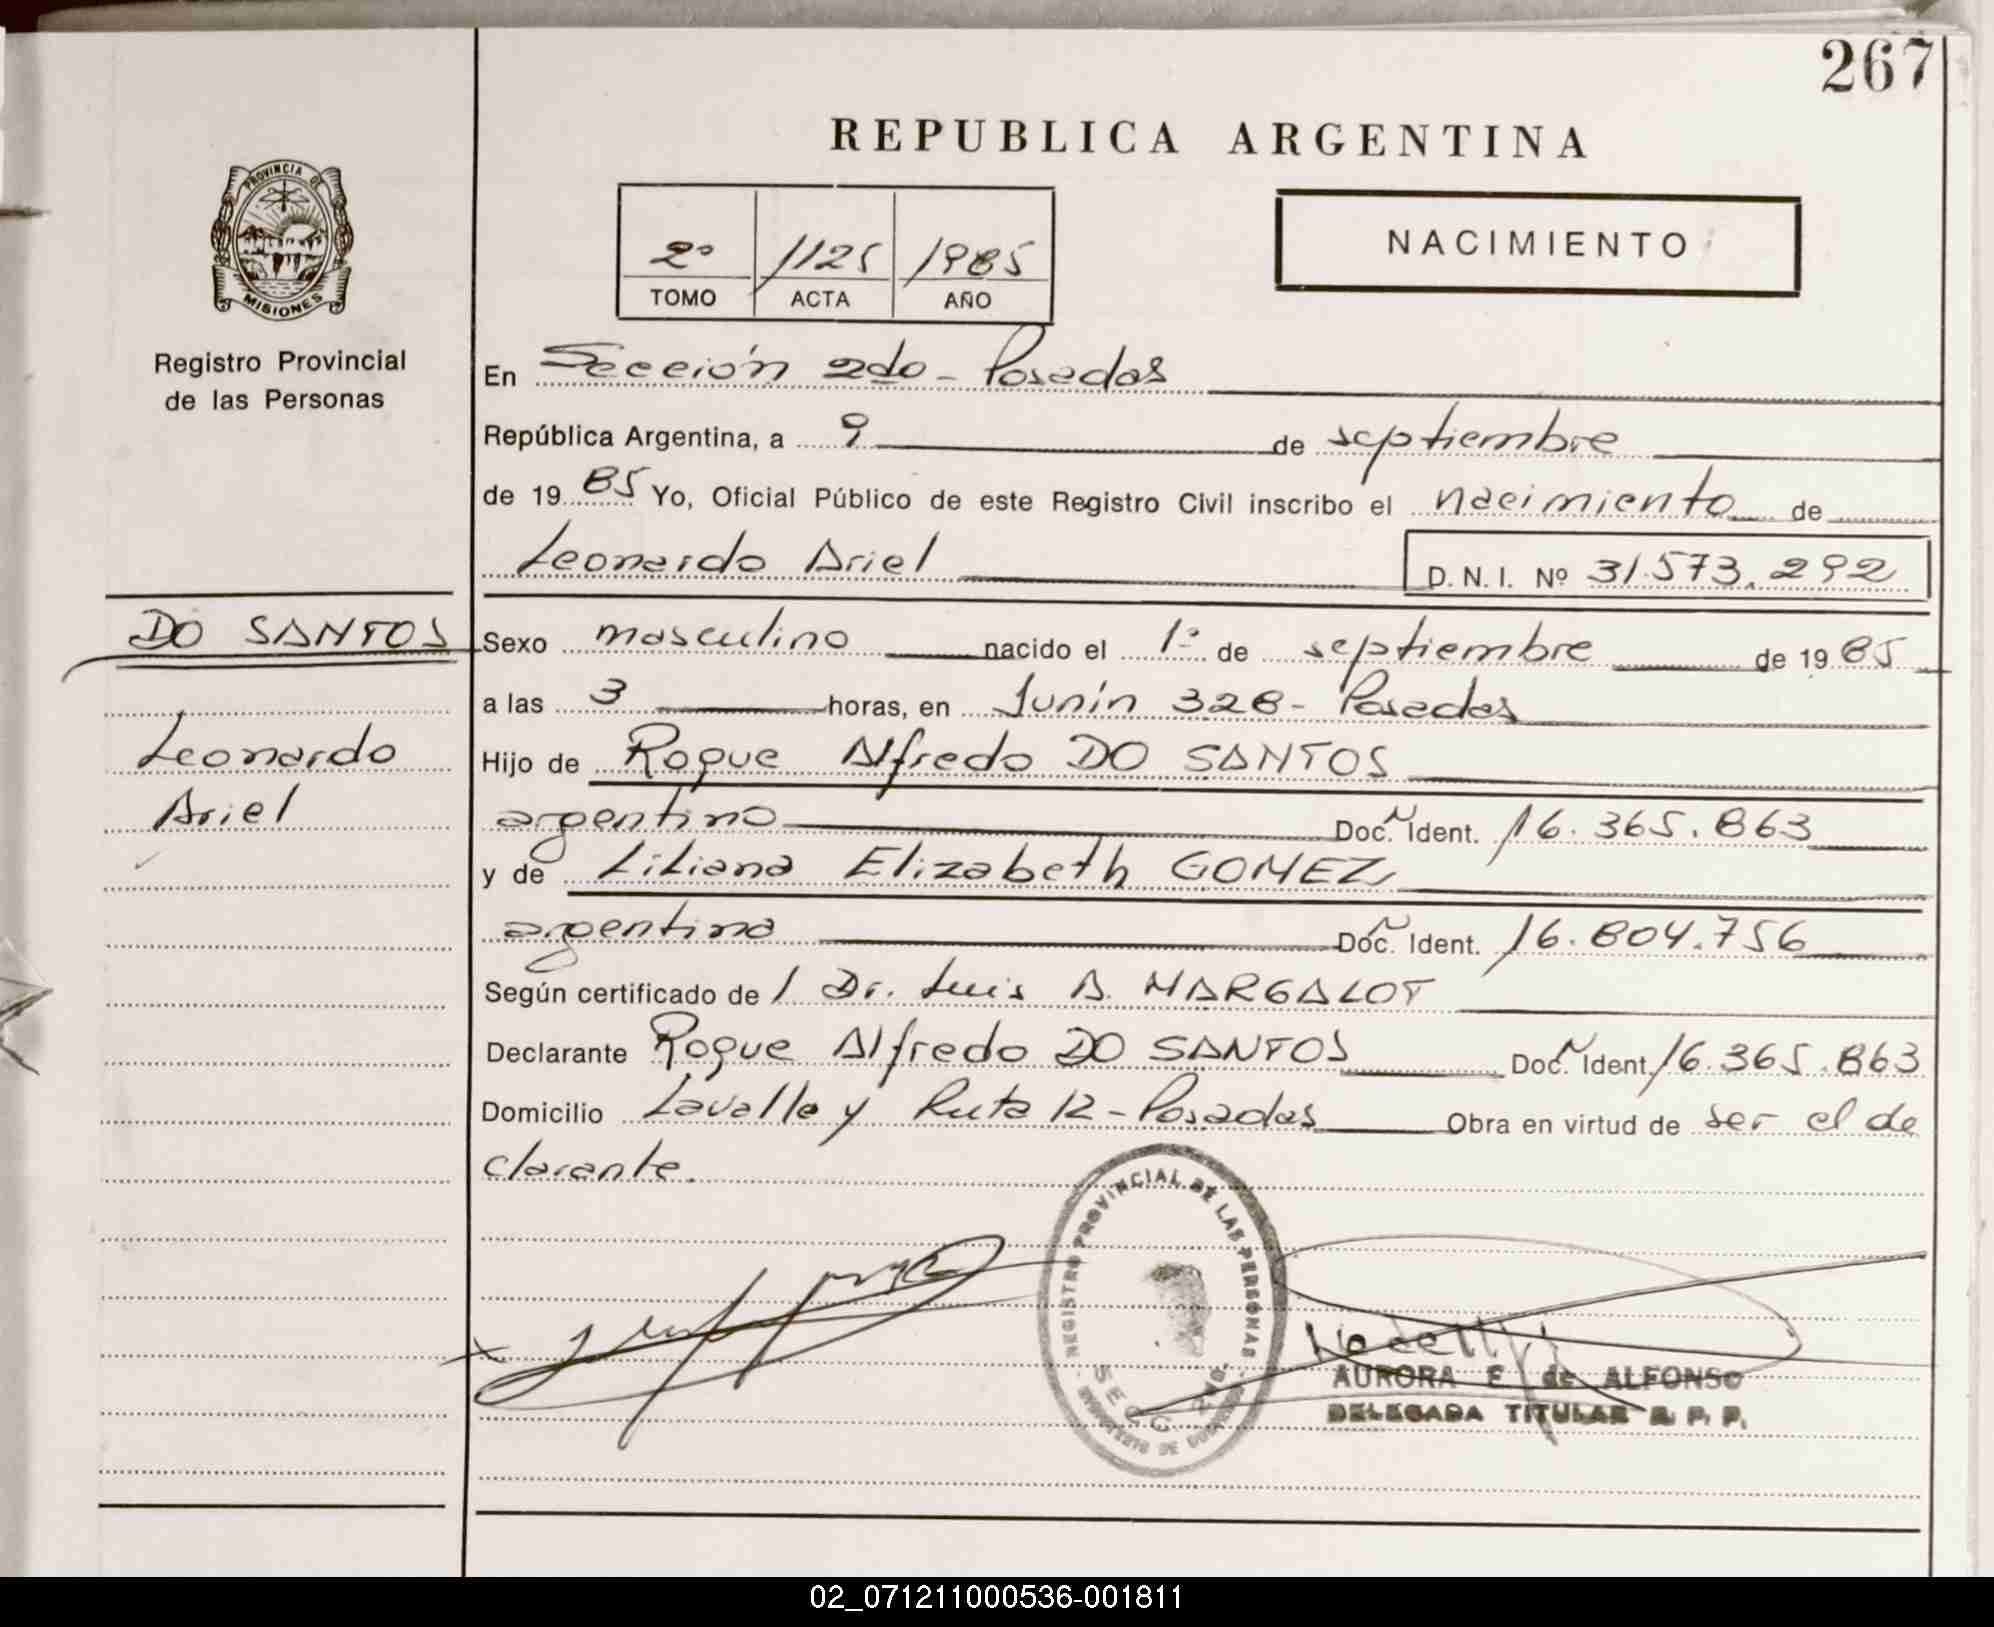 267
REPUBLICA ARGENTINA
PROVINCIA DE
MISIONES
Registro Provincial
de las Personas
2º 1125 1985
TOMO ACTA AÑO
NACIMIENTO
En Sección 2do - Posadas
República Argentina, a 9 de septiembre
de 1985 Yo, Oficial Público de este Registro Civil inscribo el nacimiento de
Leonardo Ariel D. N. I. Nº 31.573.292
DO SANTOS
Leonardo
Ariel
Sexo masculino nacido el 1º de septiembre de 1985
a las 3 horas, en Junín 328 - Posadas
Hijo de Roque Alfredo DO SANTOS
argentino Doc. Ident. 16.365.863
y de Liliana Elizabeth GOMEZ
argentina Doc. Ident. 16.804.756
Según certificado de / Dr. Luis A. MARGALOT
Declarante Roque Alfredo DO SANTOS Doc. Ident. 16.365.863
Domicilio Lavalle y Ruta 12 - Posadas Obra en virtud de ser el de
clarante.
REGISTRO PROVINCIAL DE LAS PERSONAS
SECC. 2da.
AURORA E de ALFONSO
DELEGADA TITULAR R. P. P.
02_071211000536-001811